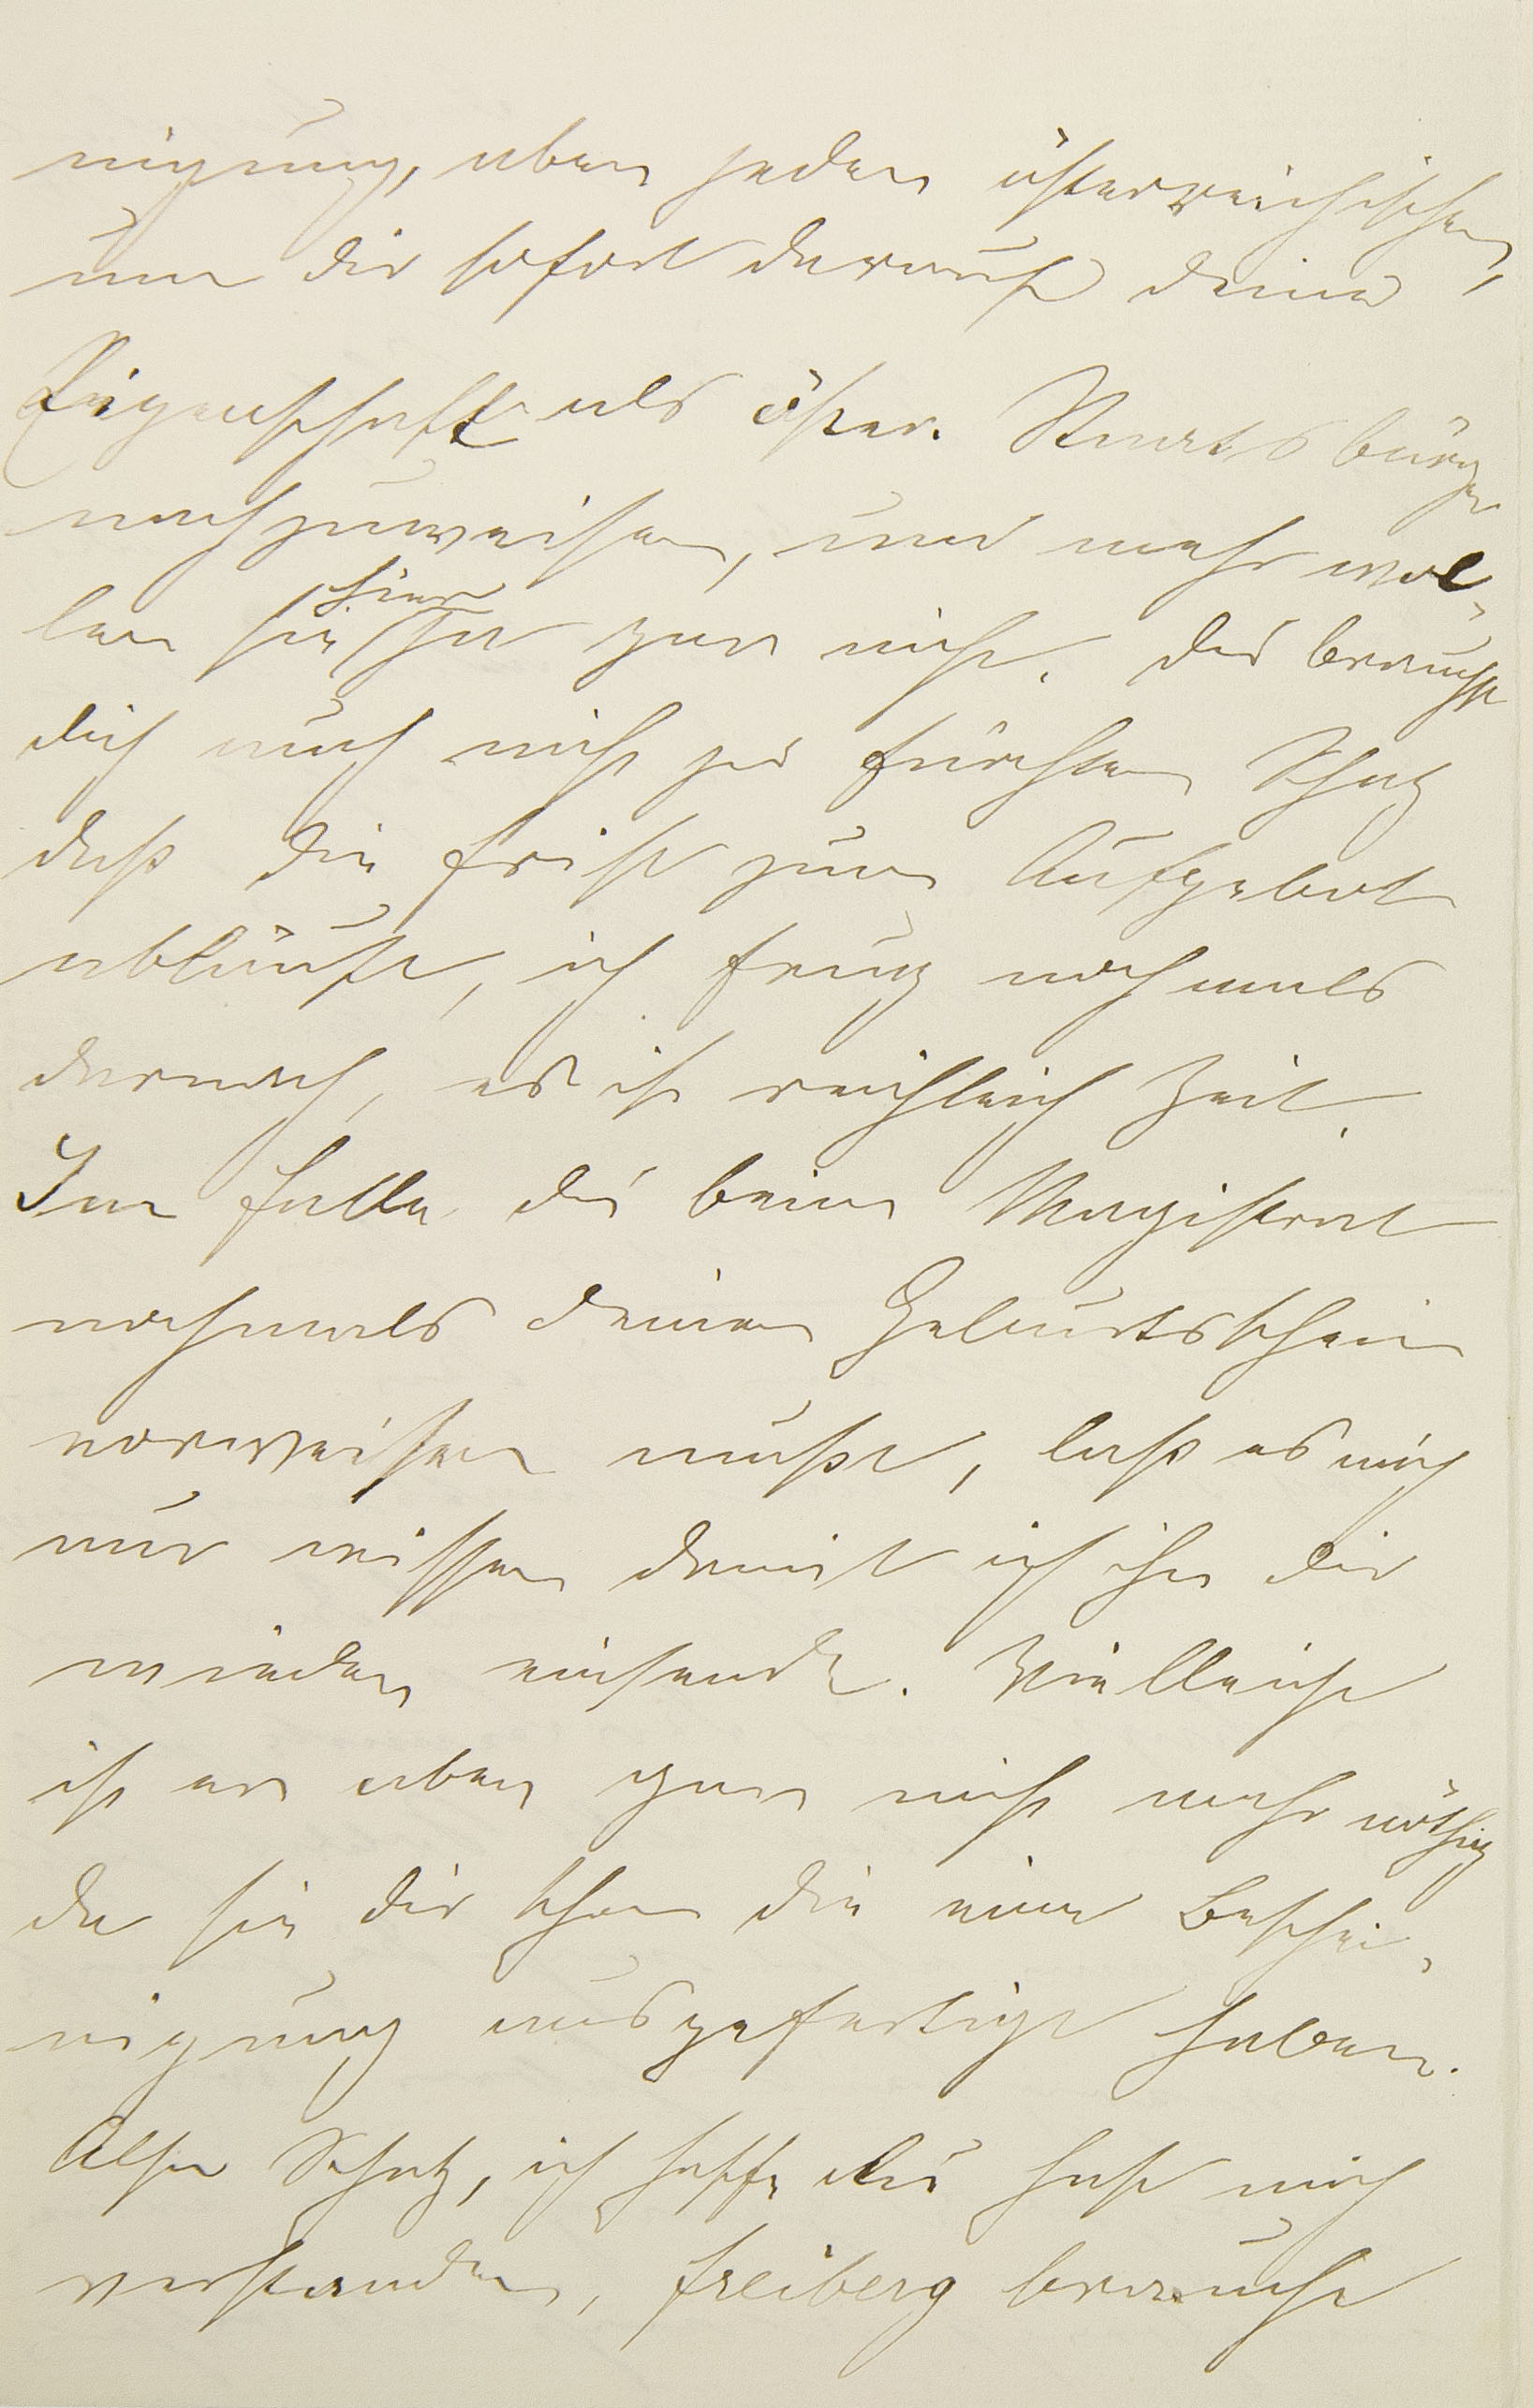 nigung, aber jeder österreichischen,
um dir sofort darauf deine
Eigenschaft als öster. Staatsbürger
nachzuweisen, und mehr wol-
len sie hier ja gar nicht. Du brauchst
dich auch nicht zu fürchten Schatz
daß die Frist zum Aufgebot
abläuft, ich frug nochmals
darnach, es ist reichlich Zeit.
Im Falle du beim Magistrat
nochmals deinen Geburtsschein
vorweisen mußt, laß es mich
nur wissen damit ich ihn dir
wieder einsende. Vielleicht
ist er aber gar nicht mehr nöthig
da sie dir schon die eine Beschei-
nigung ausgefertigt haben.
Also Schatz, ich hoffe du hast mich
verstanden, Freiberg braucht